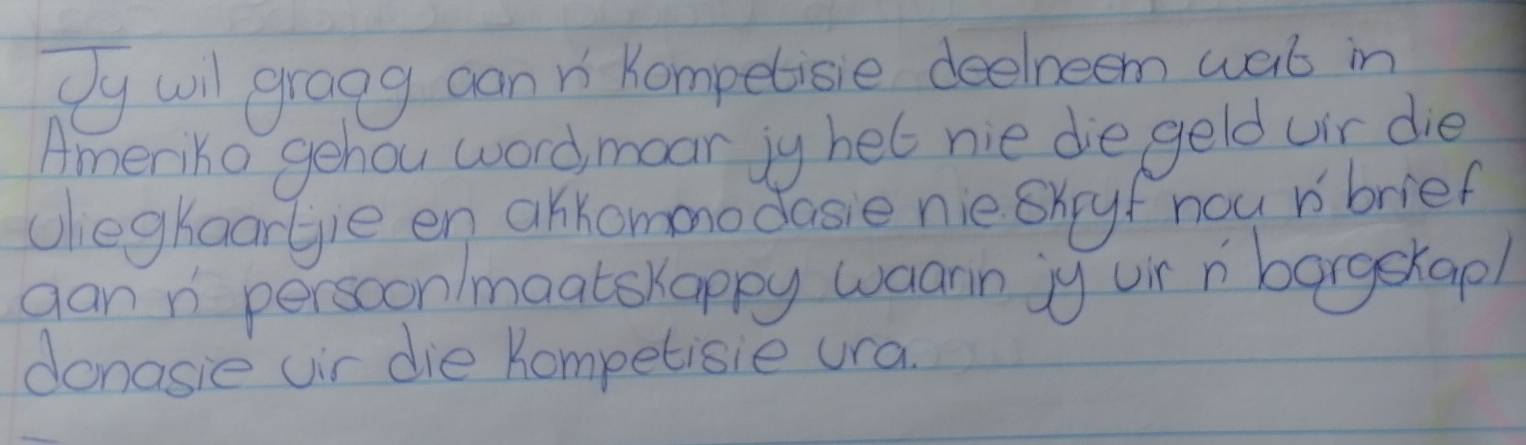 Jy wil graag aan 'n Kompetisie deelneem wat in
Amerika gehou word, maar jy het nie die geld vir die
vliegkaartjie en akkommodasie nie. Skryf nou 'n brief
aan 'n persoon/maatskappy waarin jy vir 'n borgskap/
donasie vir die Kompetisie vra.